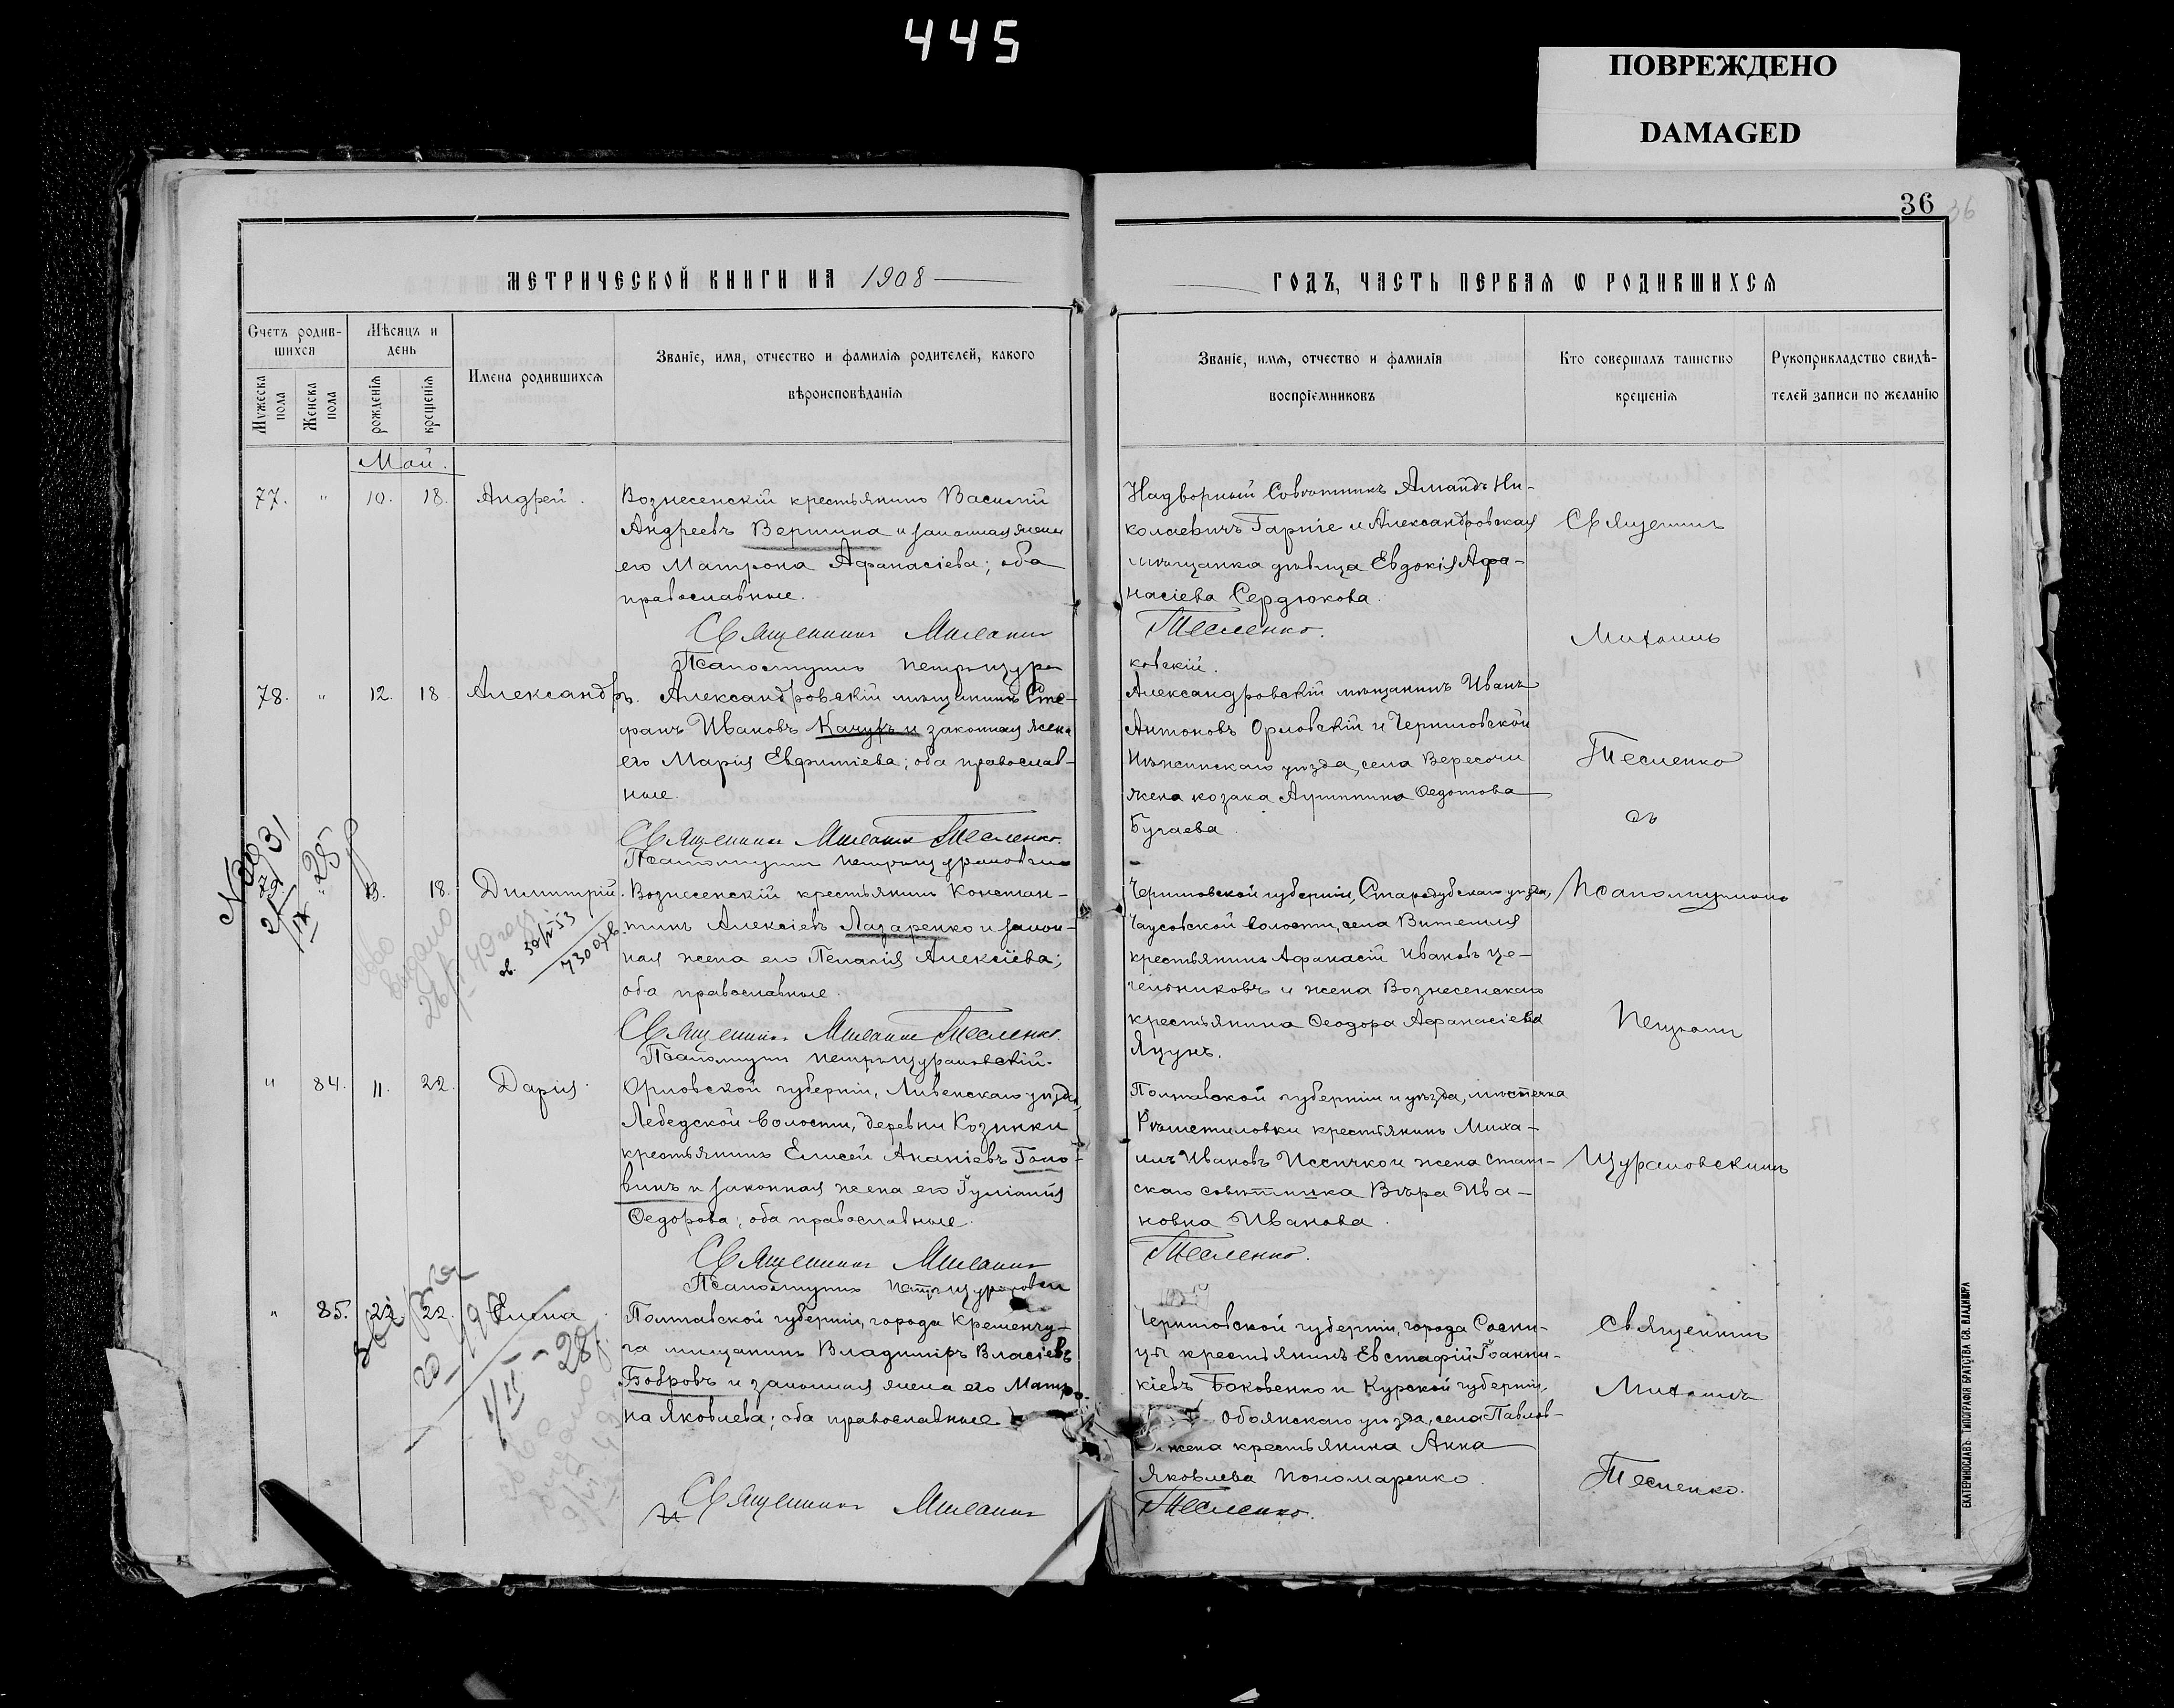 445
ПОВРЕЖДЕНО
DAMAGED
36
36
МЕТРИЧЕСКОЙ КНИГИ НА 1908
ГОДЪ, ЧАСТЬ ПЕРВАЯ Ѡ РОДИВШИХСЯ
Счетъ родив-
шихся
Мужеска
пола
Женска
пола
Мѣсяцъ и
день
рожденія
крещенія
Имена родившихся
Званіе, имя, отчество и фамилія родителей, какого
вѣроисповѣданія
Званіе, имя, отчество и фамилія
воспріемниковъ
Кто совершалъ таинство
крещенія
Рукоприкладство свидѣ-
телей записи по желанію
Май.
77. " 10. 18. Андрей.
Вознесенскій крестьянинъ Василій
Андреевъ Вертина и законная жена
его Матрона Афанасіева; оба
православные.
Священникъ Михаилъ
Псаломщикъ Петръ Цура
Надворный Совѣтникъ Амандъ Ни-
колаевичъ Гарніе и Александровская
мѣщанка дѣвица Евдокія Афа-
насіева Сердюкова.
Тесленко.
ковскій.
78. " 12. 18 Александръ.
Александровскій мѣщанинъ Сте-
фанъ Ивановъ Качукъ и законная жена
его Марія Евфиміева; оба православ-
ные.
Священникъ Михаилъ Тесленко.
Псаломщикъ Петръ
Александровскій мѣщанинъ Иванъ
Антоновъ Орловскій и Черниговской
Нѣжинскаго уѣзда, села Вересочи
жена козака Ѳедотова
Бугаева.
79. 13. 18. Димитрій.
Вознесенскій крестьянинъ Констан-
тинъ Алексіевъ Лазаренко и закон-
ная жена его Пелагія Алексіева;
оба православные.
Священникъ Михаилъ Тесленко.
Псаломщикъ Петръ
Черниговской губерніи, Стародубскаго уѣзда,
волости, села Витемля
крестьянинъ Афанасій Ивановъ
и жена Вознесенскаго
крестьянина Ѳеодора Афанасіева
Яцунъ.
" 84. 11. 22. Дарія.
Орловской губерніи, Ливенскаго уѣзда
Лебедской волости, деревни Козинки
крестьянинъ Елисей Ананіевъ Голо-
винъ и законная жена его Іуліанія
Ѳедорова; оба православные.
Священникъ Михаилъ
Псаломщикъ Петръ
Полтавской губерніи и уѣзда, мѣстечка
Рѣшетиловки крестьянинъ Миха-
илъ Ивановъ и жена стат-
скаго совѣтника Вѣра Ива-
новна Иванова.
Тесленко.
" 85. 22. 22. Елена.
Полтавской губерніи, города Кременчу-
га мѣщанинъ Владиміръ Власіевъ
Бобровъ и законная жена его Матро-
на Яковлева; оба православные
Священникъ Михаилъ
Черниговской губерніи, города Сосни-
цы крестьянинъ Евстафій Іоанни-
кіевъ Баковенко и Курской губерніи,
Обоянскаго уѣзда, села Павлов-
жена крестьянина Анна
Яковлева Пономаренко.
Тесленко.
Священникъ
Михаилъ
Тесленко
съ
Псаломщикомъ
Петромъ
Священникъ
Михаилъ
Тесленко.
ЕКАТЕРИНОСЛАВЪ. ТИПОГРАФІЯ БРАТСТВА СВ. ВЛАДИМІРА